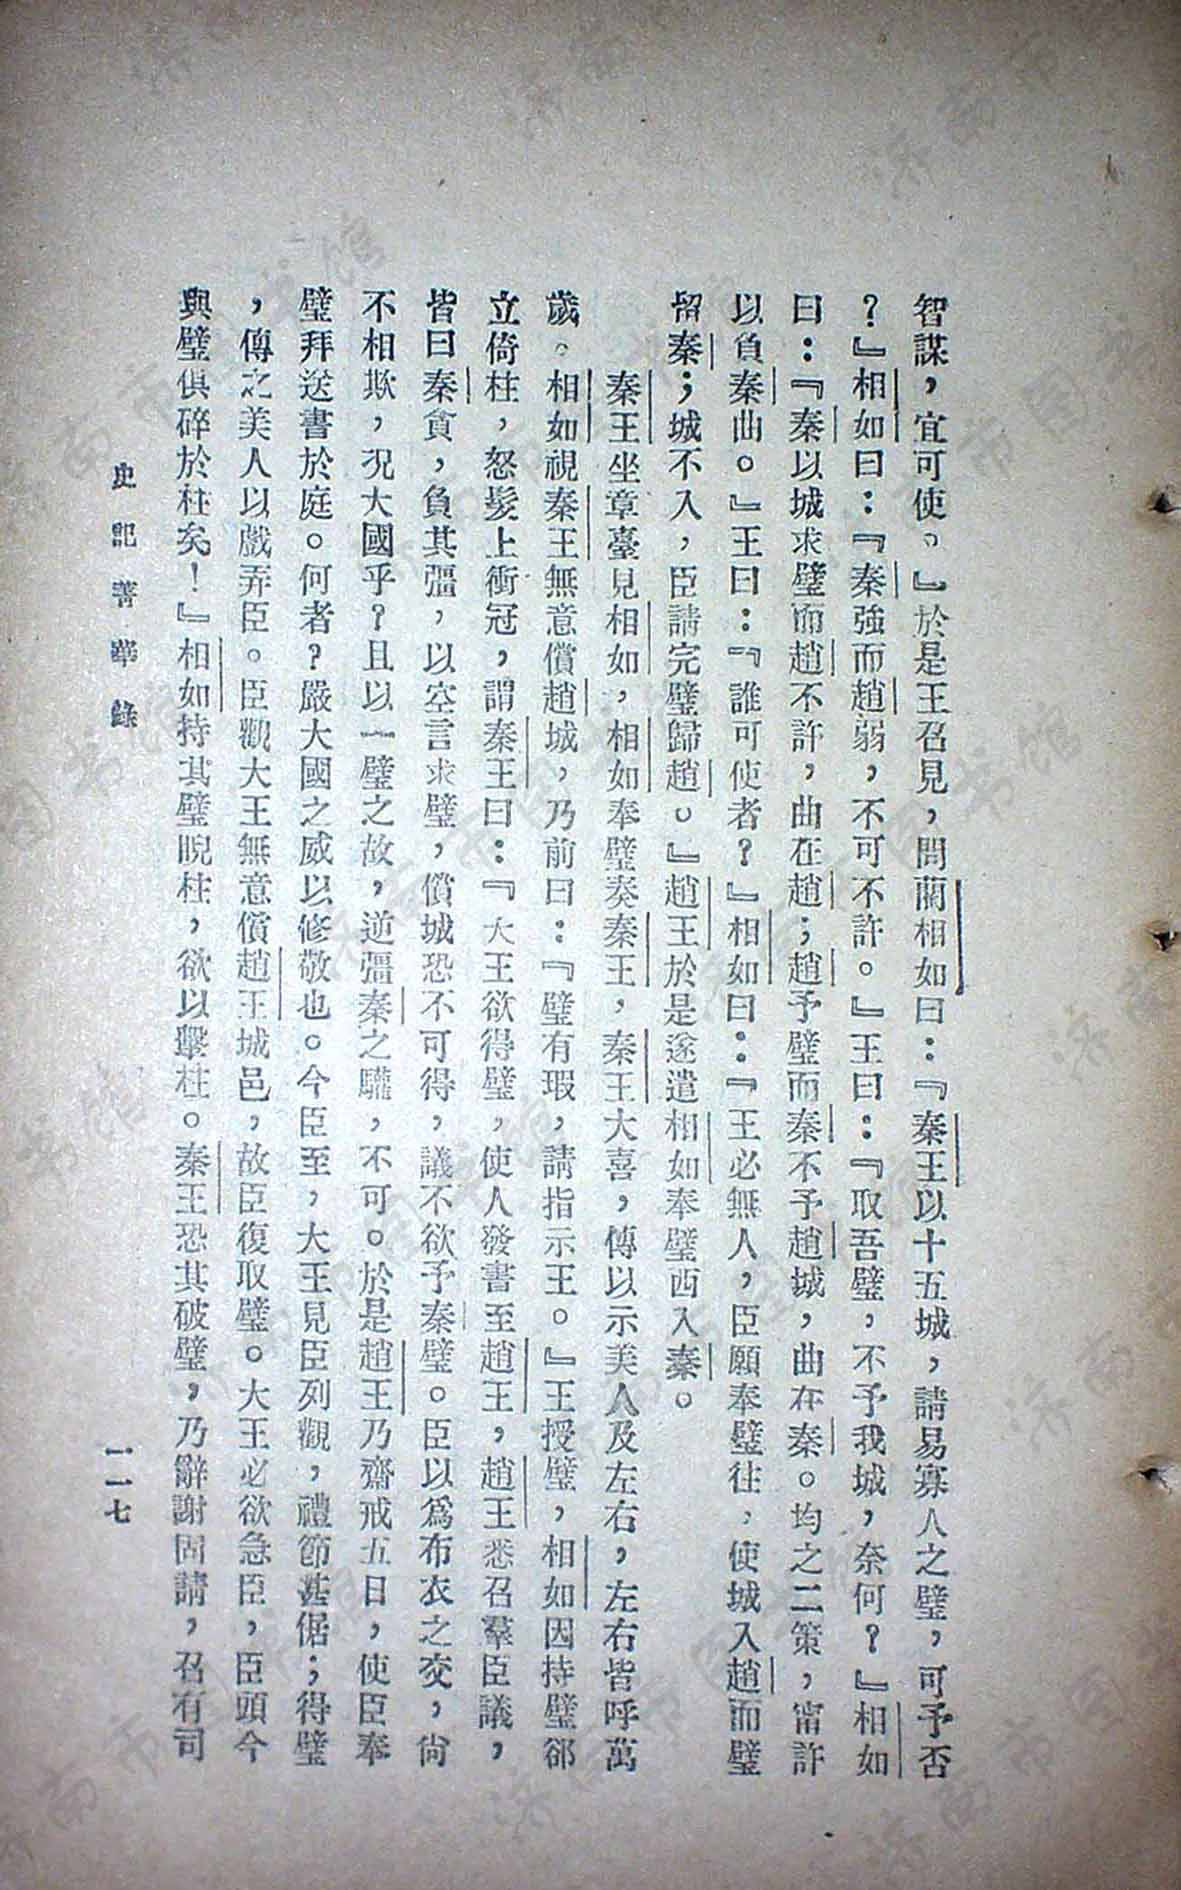 智謀，宜可使。』於是王召見，問藺相如曰：『秦王以十五城，請易寡人之璧，可予否
？』相如曰：『秦強而趙弱，不可不許。』王曰：『取吾璧，不予我城，奈何？』相如
曰：『秦以城求璧而趙不許，曲在趙；趙予璧而秦不予趙城，曲在秦。均之二策，甯許
以負秦曲。』王曰：『誰可使者？』相如曰：『王必無人，臣願奉璧往，使城入趙而璧
留秦；城不入，臣請完璧歸趙。』趙王於是遂遣相如奉璧西入秦。
秦王坐章臺見相如，相如奉璧奏秦王，秦王大喜，傳以示美人及左右，左右皆呼萬
歲。相如視秦王無意償趙城，乃前曰：『璧有瑕，請指示王。』王授璧，相如因持璧郤
立倚柱，怒髮上衝冠，謂秦王曰：『大王欲得璧，使人發書至趙王，趙王悉召羣臣議，
皆曰秦貪，負其彊，以空言求璧，償城恐不可得，議不欲予秦璧。臣以爲布衣之交，尙
不相欺，况大國乎？且以一璧之故，逆彊秦之驩，不可。於是趙王乃齋戒五日，使臣奉
璧拜送書於庭。何者？嚴大國之威以修敬也。今臣至，大王見臣列觀，禮節甚倨；得璧
，傳之美人以戲弄臣。臣觀大王無意償趙王城邑，故臣復取璧。大王必欲急臣，臣頭今
與璧俱碎於柱矣！』相如持其璧睨柱，欲以擊柱。秦王恐其破璧，乃辭謝固請，召有司
史記菁華錄
一一七
济南市图书馆